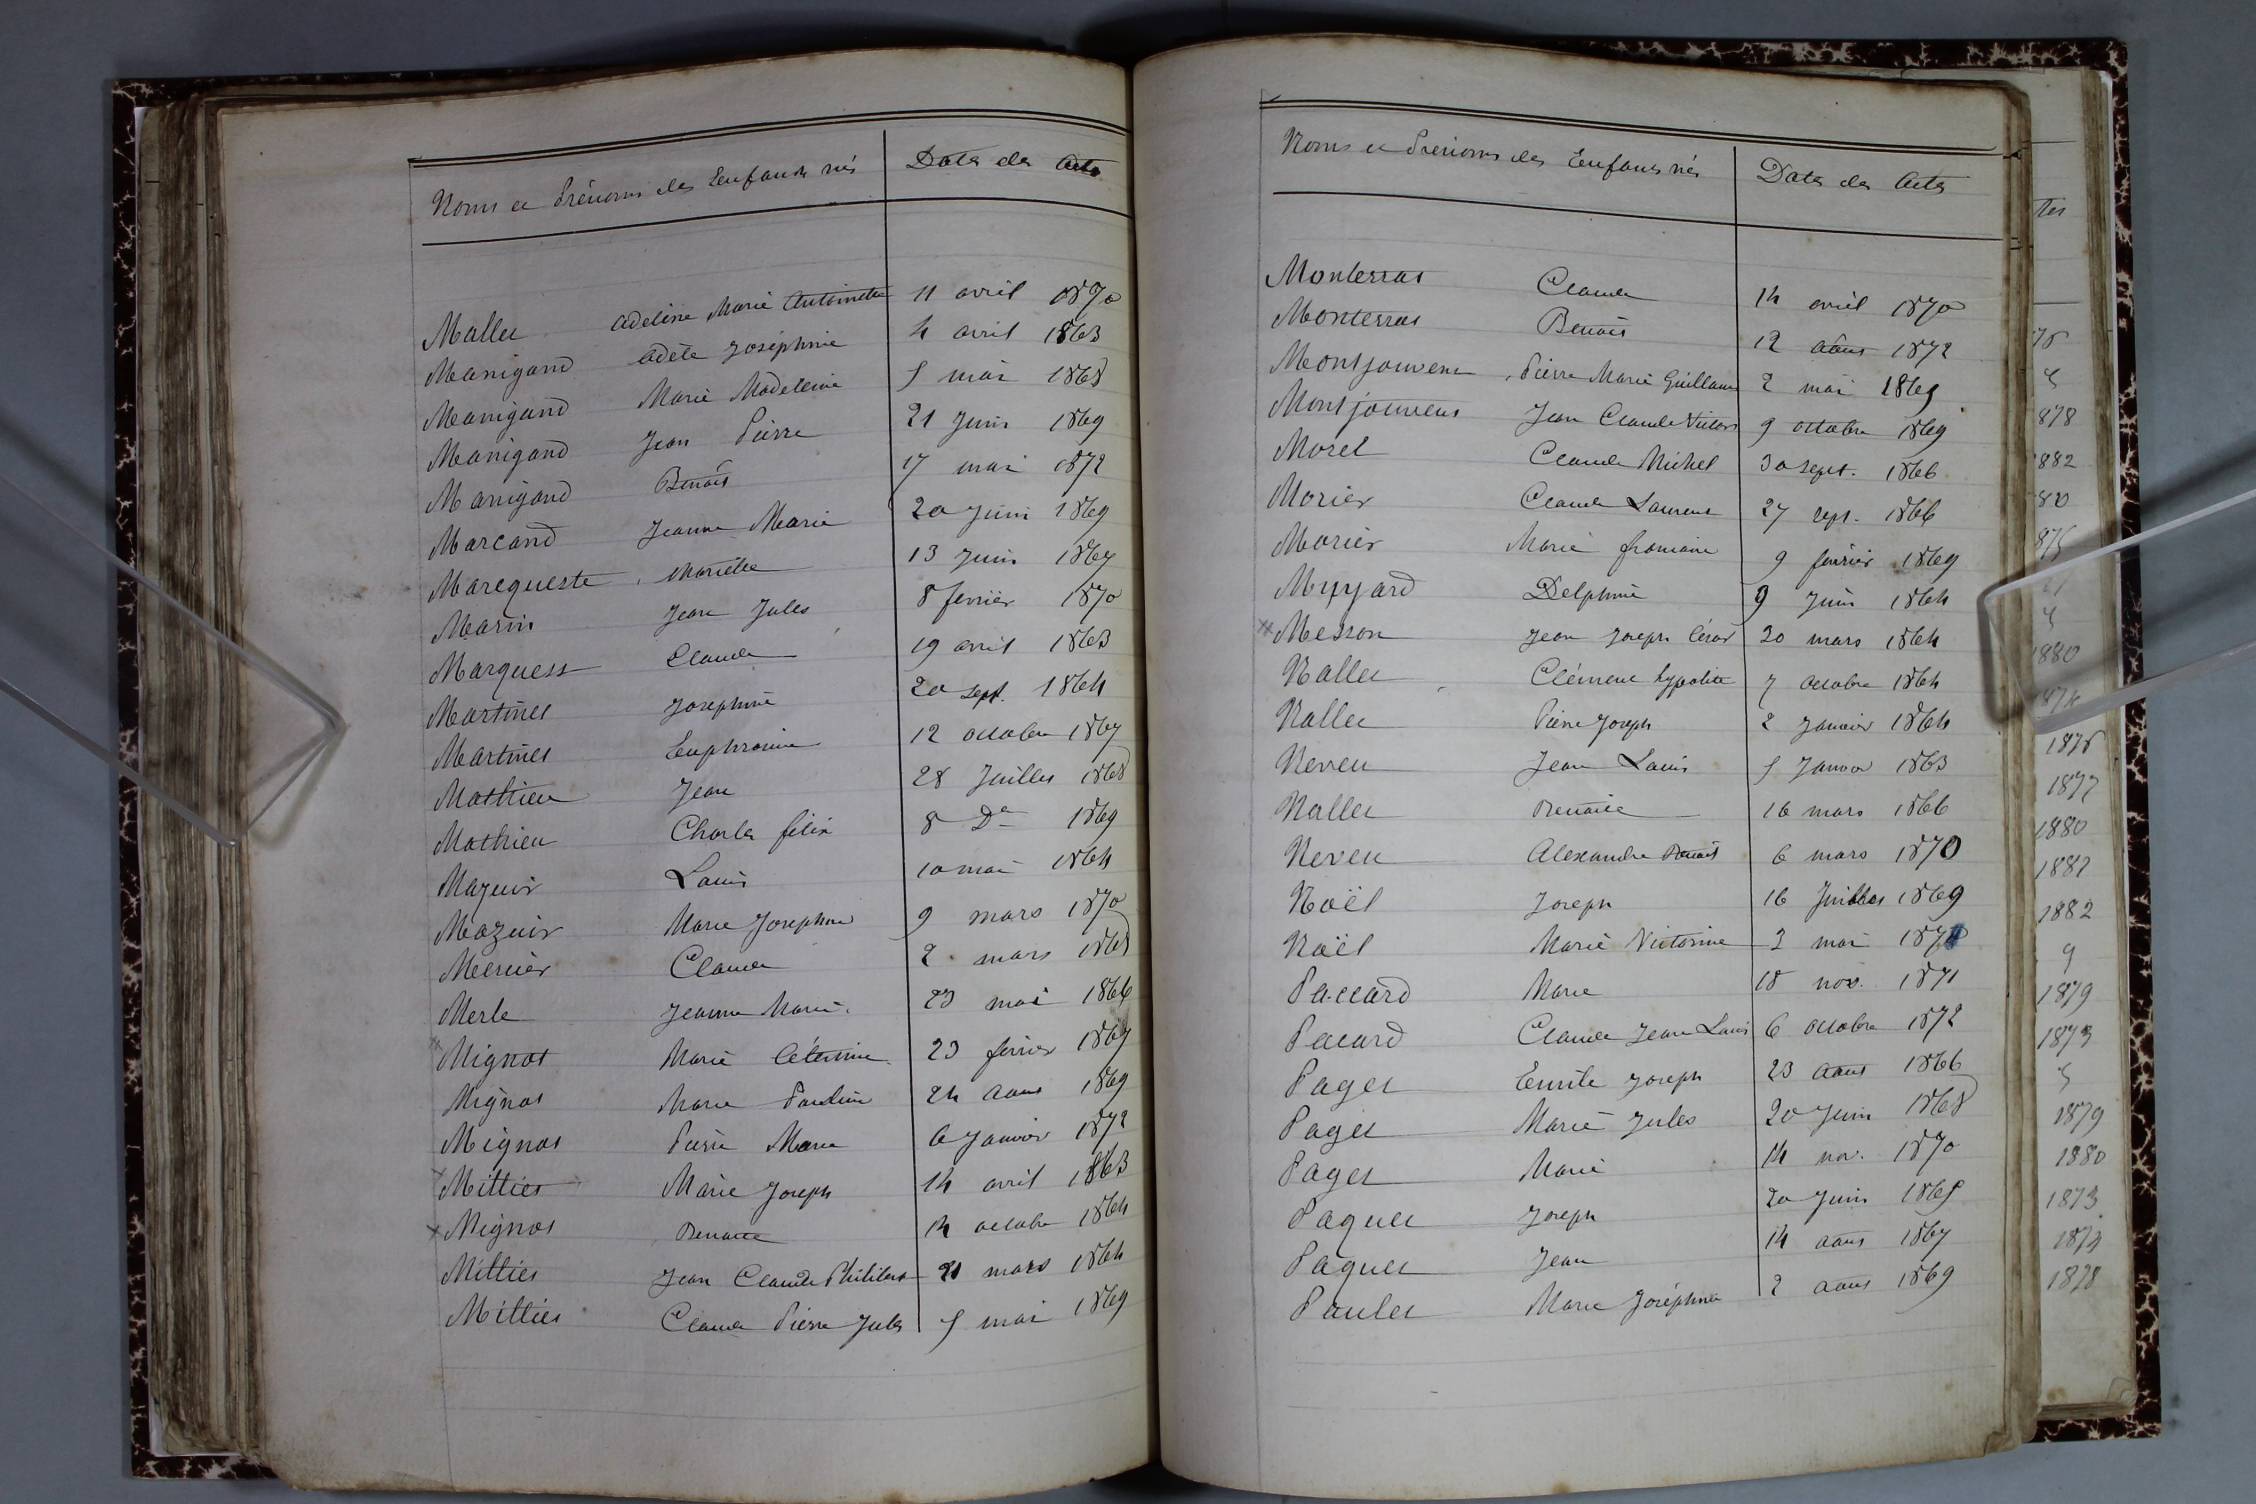 Noms et Prénoms des Enfants nés Dates des Actes
Mallet Adeline Marie Antoinette 11 avril 1870
Manigand Adèle Joséphine 4 avril 1863
Manigand Marie Madeleine 5 mai 1868
Manigand Jean Pierre 21 Juin 1869
Manigand Benoît 17 mai 1872
Marcand Jeanne Marie 20 Juin 1869
Marequeste Mariette 13 Juin 1867
Marin Jean Jules 8 fevrier 1870
Marquess Claude 19 avril 1863
Martines Josephine 20 sept. 1864
Martines Euphrosine 12 octobre 1867
Mathieu Jean 28 Juillet 1868
Mathieu Charles felix 8 De 1869
Mazuir Louis 10 mai 1864
Mazuir Marie Josephine 9 mars 1870
Mercier Claude 2 mars
Merle Jeanne Marie 23 mai 1866
Mignot Marie 23 fevrier 1867
Mignot Marie Pauline 24 Aout 1869
Mignot Pierre Marie 6 Janvier 1872
Millies Marie Joseph 14 avril 1863
x Mignot Benoite 14 octobre 1864
Millies Jean Claude Philibert 21 mars 1864
Millies Claude Pierre Jules 5 mai 1869
Noms et Prénoms des Enfants nés Dates des Actes
Monterrat Claude 14 avril 1870
Monterrat Benoît 12 août 1872
Montjouvent Pierre Marie Guillaume 2 mai
Montjouvens Jean Claude Victor 9 octobre 1869
Morel Claude Michel 30 sept. 1866
Morier Claude Laurent 27 sept. 1866
Morier Marie 9 février 1869
Muyard Delphine 9 Juin 1864
Messon Jean Joseph César 20 mars 1864
Nallet Clément hypolite 7 octobre 1864
Nallet Pierre Joseph 2 Janvier 1864
Neveu Jean Louis 5 Janvier 1863
Nallet Benoite 16 mars 1866
Neveu Alexandre Benoit 6 mars 1870
Noël Joseph 16 Juillet 1869
Noël Marie Victorine 2 mai
Paccard Marie 18 nov. 1871
Pacard Claude Jean Louis 6 octobre 1872
Paget Emile Joseph 23 Aout 1866
Paget Marie Jules 20 Juin 1868
Paget Marie 14 nov. 1870
Paquet Joseph 20 Juin
Paquet Jean 14 aout 1867
Paulet Marie Joséphine 2 aout 1869
tes
878
882
1880
1877
1880
1882
1879
1873
1879
1880
1873
1878